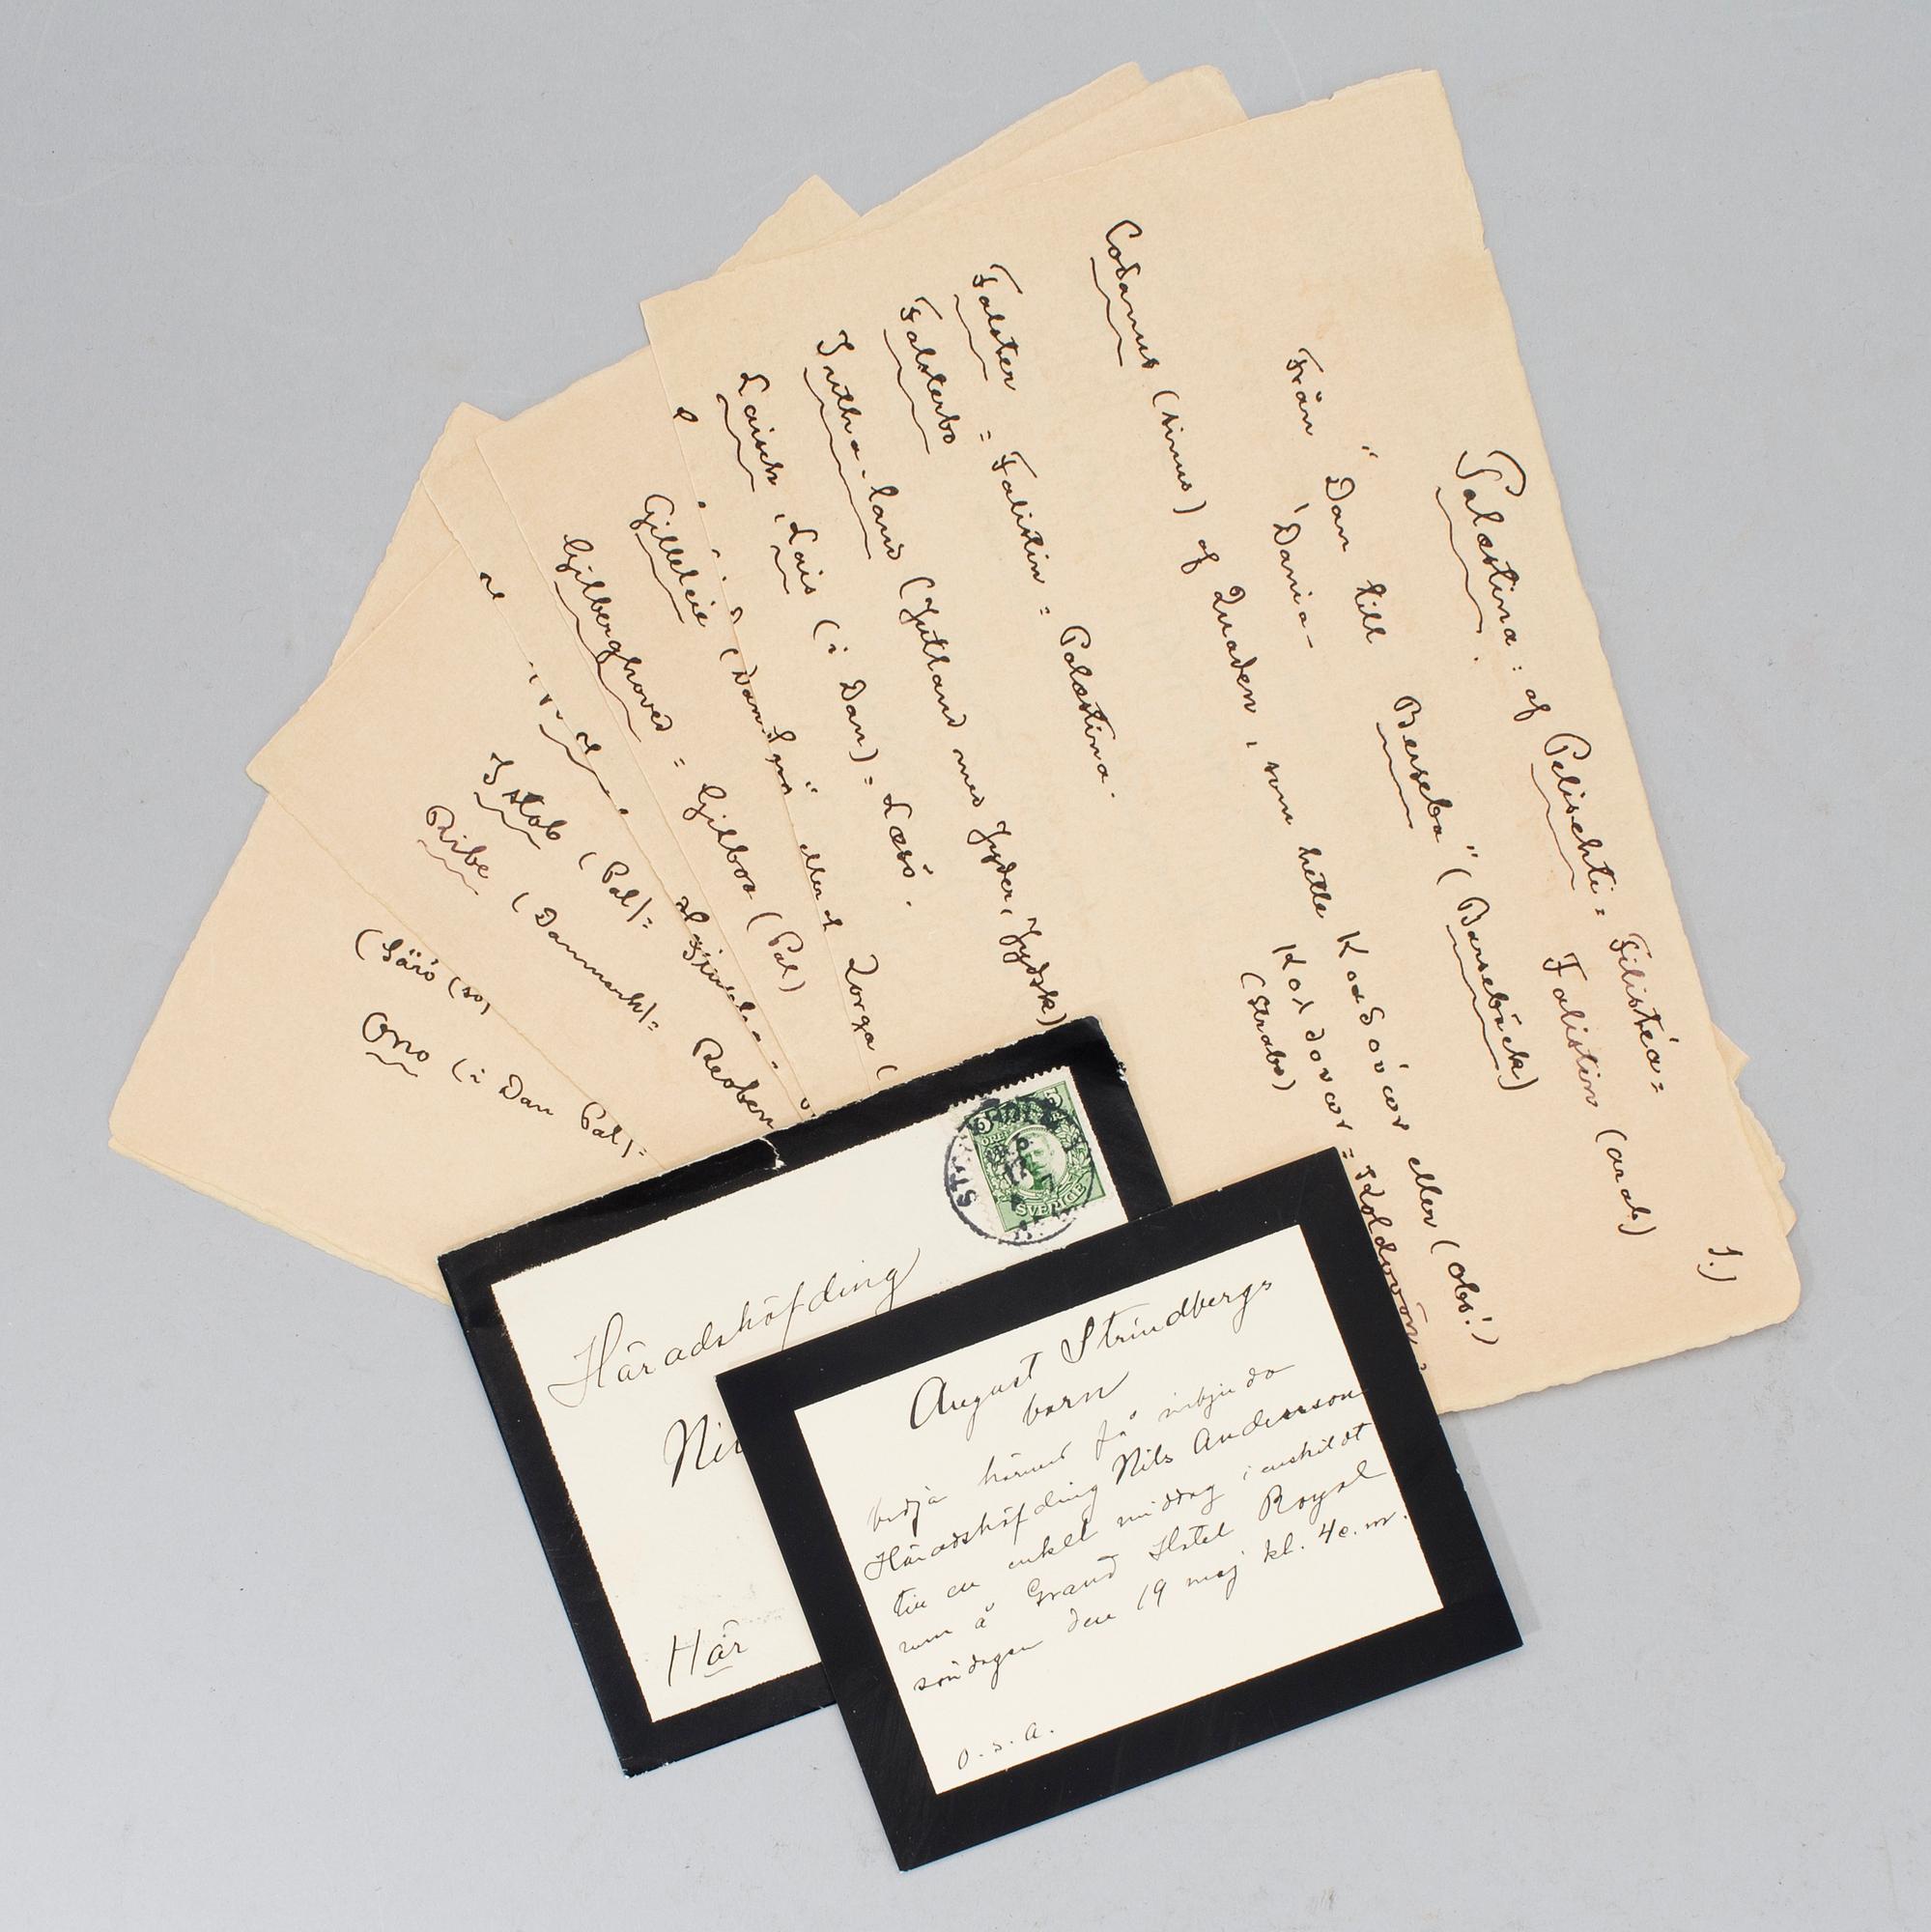 1.)
Palæstina: af Pelischti = Filistéa =
Falistin (arab)
Från "Dan till Berseba" (Barsebäck)
'Dania-
Codanus (sinus) af Quaden, som hette Κοαδούοι eller (obs!)
Κολδουοι = Koldovör
(Strabo)
Falster = Falistin = Palæstina.
Falsterbo
Jutha-land (Jutland med Jyder, Jydsk)
Laisch, Lais (i Dan) = Læsö.
Zorga (
Gilleleie
Gilberghoved = Gilboa (Pal)
Istob (Pal) =
Ribe (Danmark) = Ruben
(Särö (so)
Ono (i Dan Pal) =
5 5
ÖRE
SVERIGE
Häradshöfding
Här
August Strindbergs
barn
bedja härmed få inbjuda
Häradshöfding Nils Andersson
till en enkel middag i enskildt
rum å Grand Hotel Royal
söndagen den 19 maj kl. 4 e.m.
o.s.a.